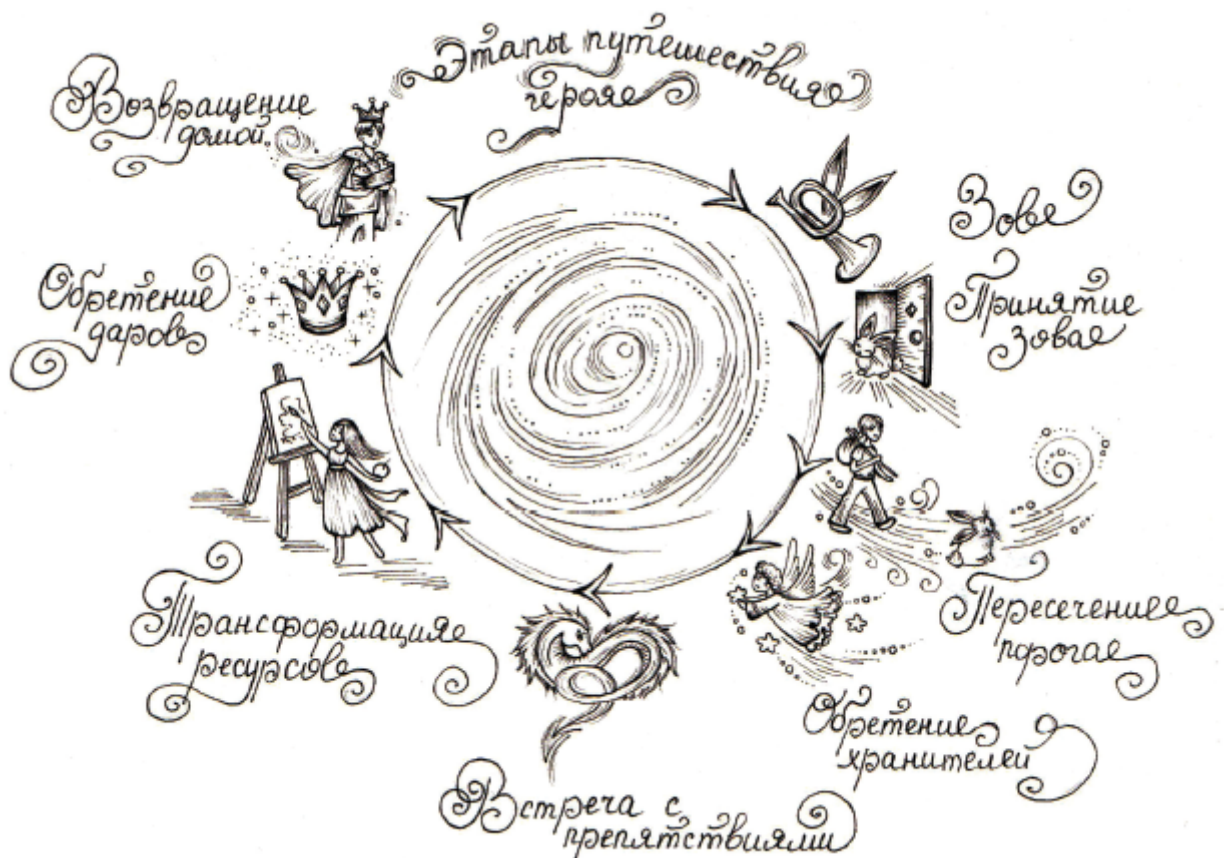 Этапы путешествия
героя
Зов
Принятие
зова
Пересечение
порога
Обретение
хранителей
Встреча с
препятствиями
Трансформация
ресурсов
Обретение
даров
Возвращение
домой